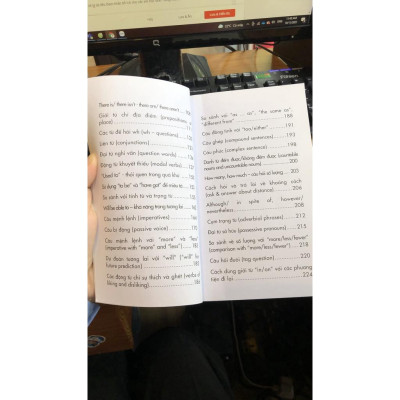 There is/ there isn't - there are/ there aren't
Giới từ chỉ địa điểm (prepositions of place)
Các từ để hỏi wh (wh – questions)
Liên từ (conjunctions)
Đại từ nghi vấn (question words)
Động từ khuyết thiếu (modal verbs)
"Used to" – thói quen trong quá khứ
Sử dụng "to be" và "have got" để miêu tả
So sánh với tính từ và trạng từ
Will be able to – khả năng trong tương lai
Câu mệnh lệnh (imperatives)
Câu bị động (passive voice)
Câu mệnh lệnh với "more" và "less"
(imperative with "more" and "less")
Dự đoán tương lai với "will" ("will" for
future prediction)
Các động từ chỉ sự thích và ghét (verbs of
liking and disliking)
So sánh với "as ... as", "the same as",
"different from" 188
Câu đồng tình với "too/either"
191
Câu ghép (compound sentences)
193
Câu phức (complex sentences)
198
Danh từ đếm được/không đếm được (countable
nouns and uncountable nouns) 200
How many, how much – câu hỏi số lượng
203
Cách hỏi và trả lời về khoảng cách
(ask & answer about distance) 205
Although/ in spite of, however/
nevertheless 208
Cụm trạng từ (adverbial phrases)
212
Đại từ sở hữu (possessive pronouns)
215
So sánh về số lượng với "more/less/fewer"
(comparison with "more/less/fewer") 218
Câu hỏi đuôi (tag question)
220
Cách dùng giới từ "in/on" với các phương
tiện đi lại 224